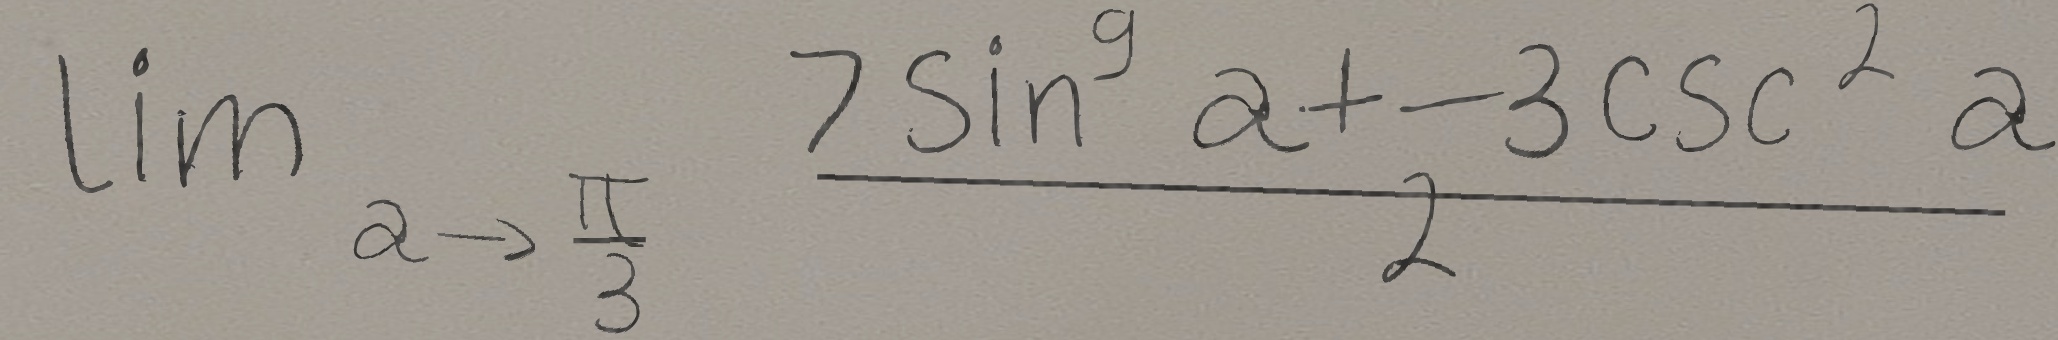 \lim_{a \to \frac{\pi}{3}} \frac{7 \sin^{9} a + -3 \csc^{2} a}{2}